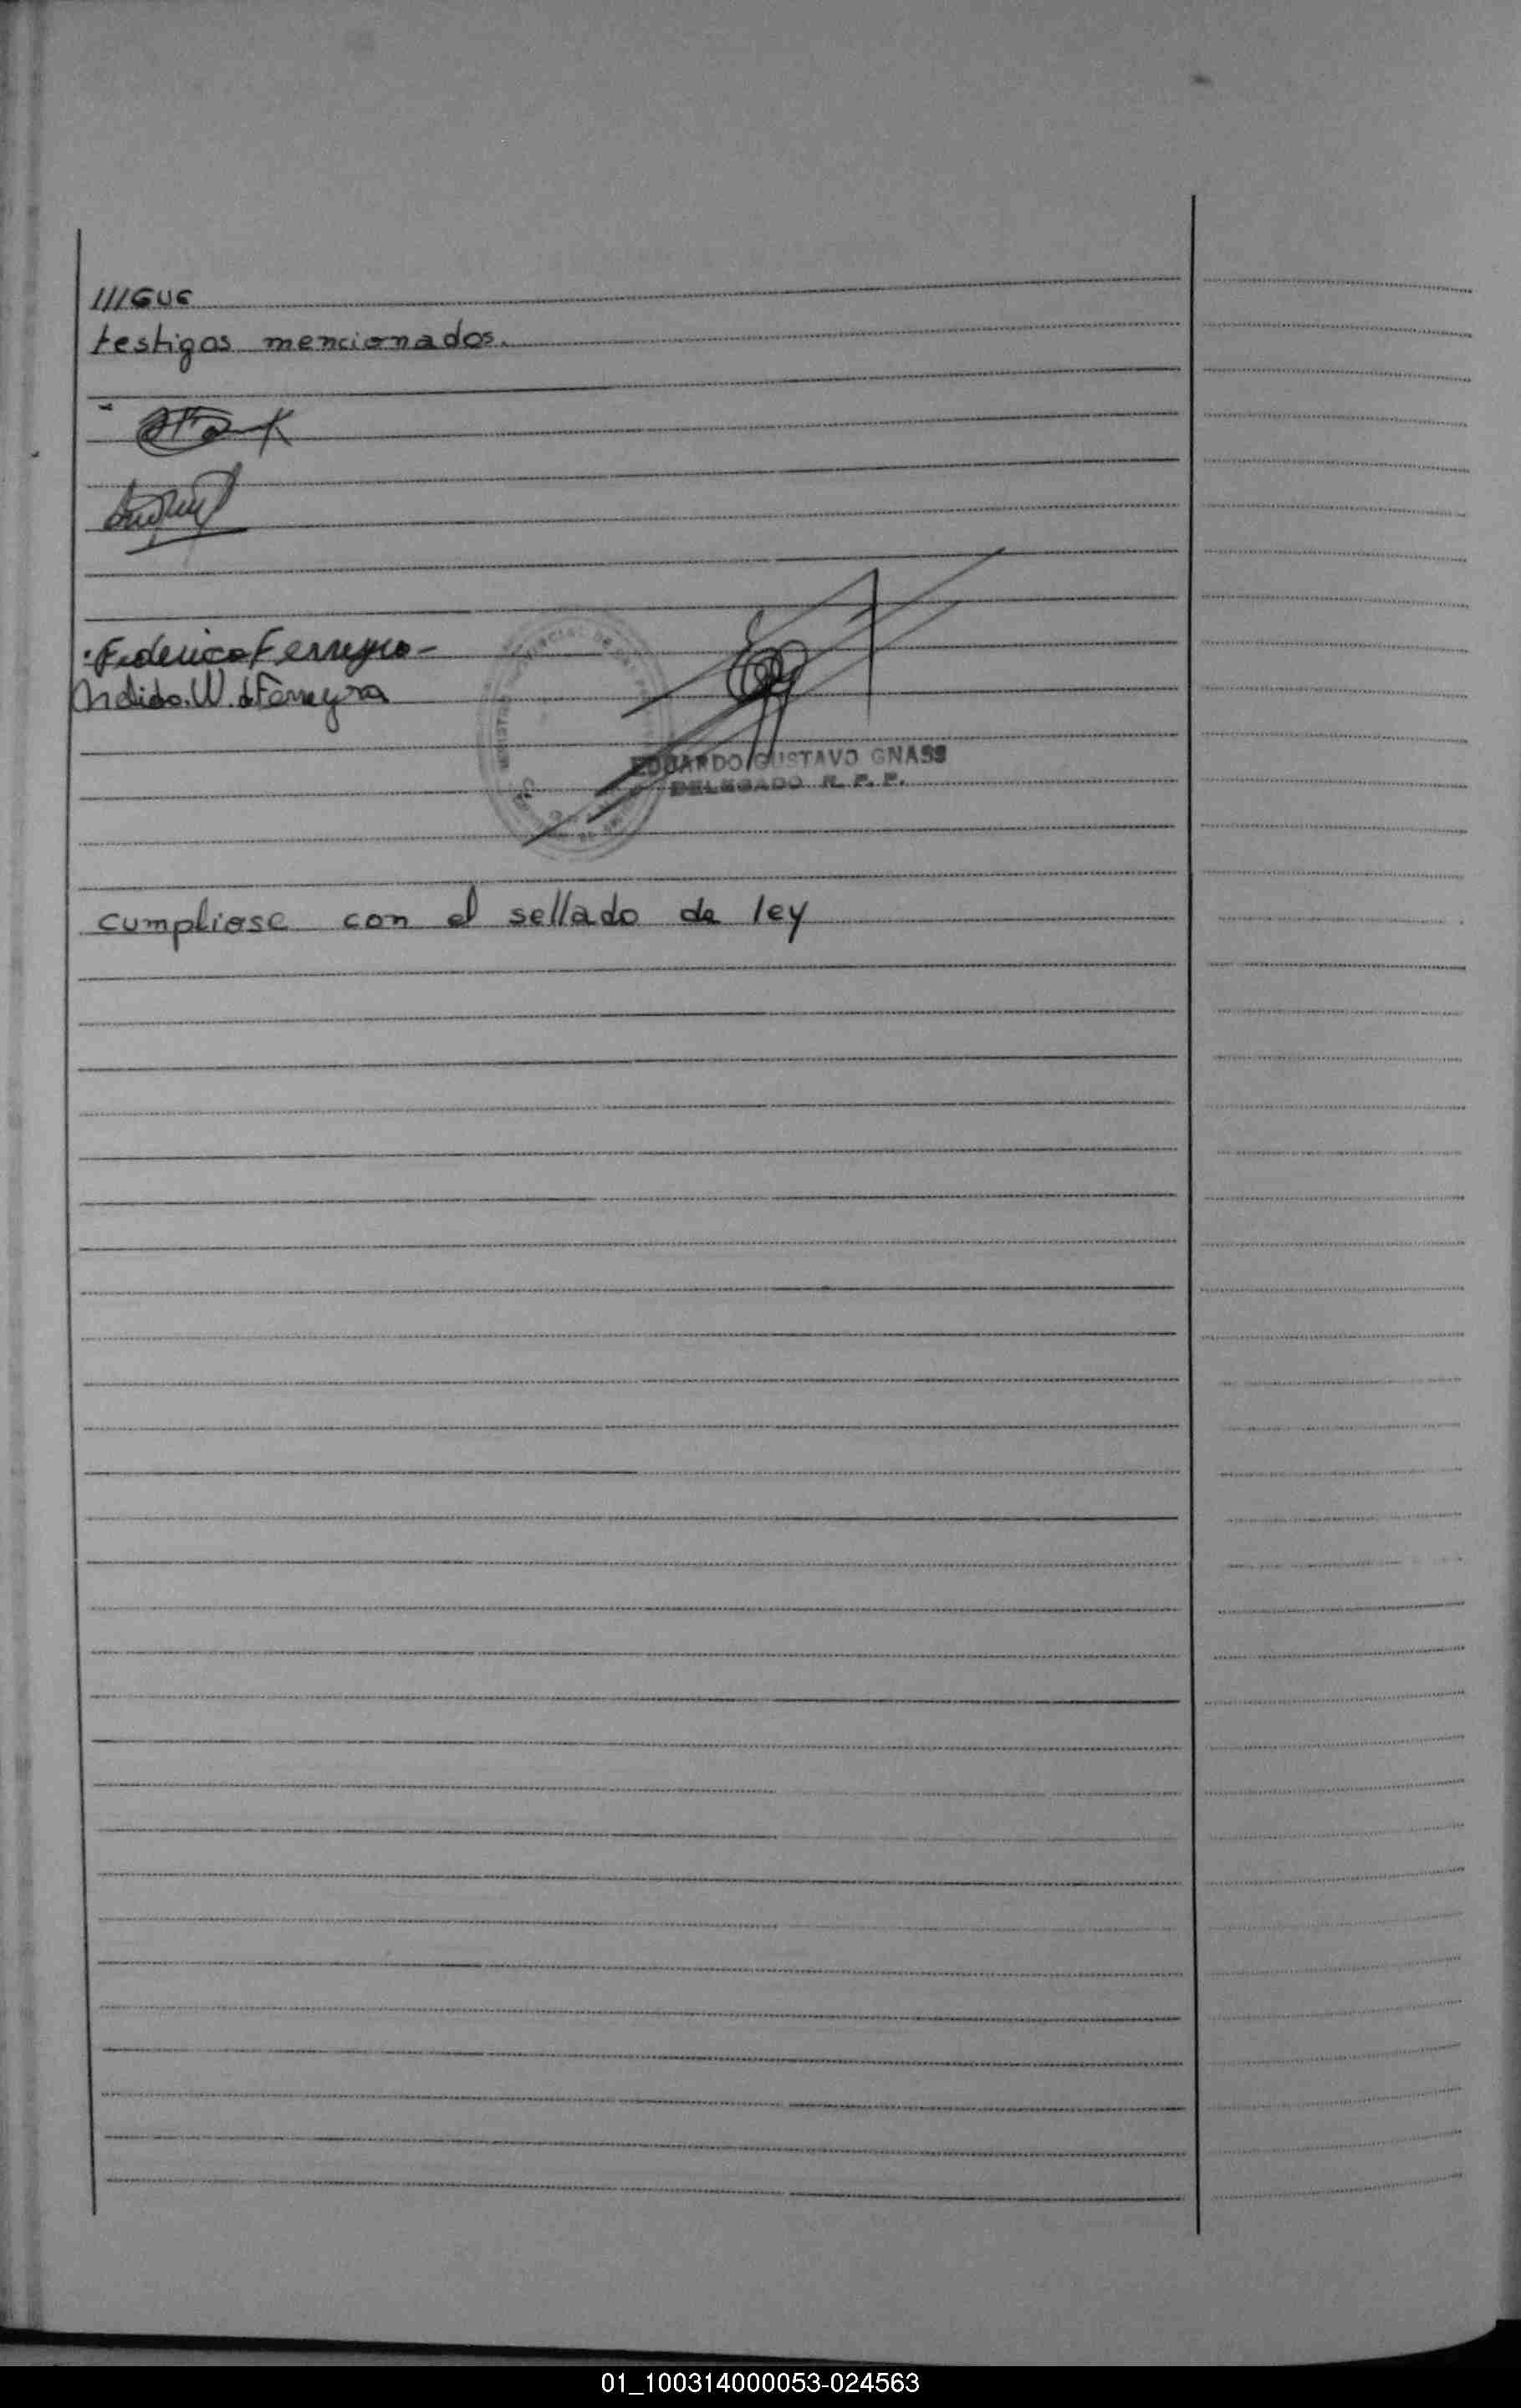 ///GUE
testigos mencionados.
Federico Ferreyra-
W. de Ferreyra
EDUARDO GUSTAVO GNASS
DELEGADO R. P. P.
cumpliose con el sellado de ley
01_100314000053-024563